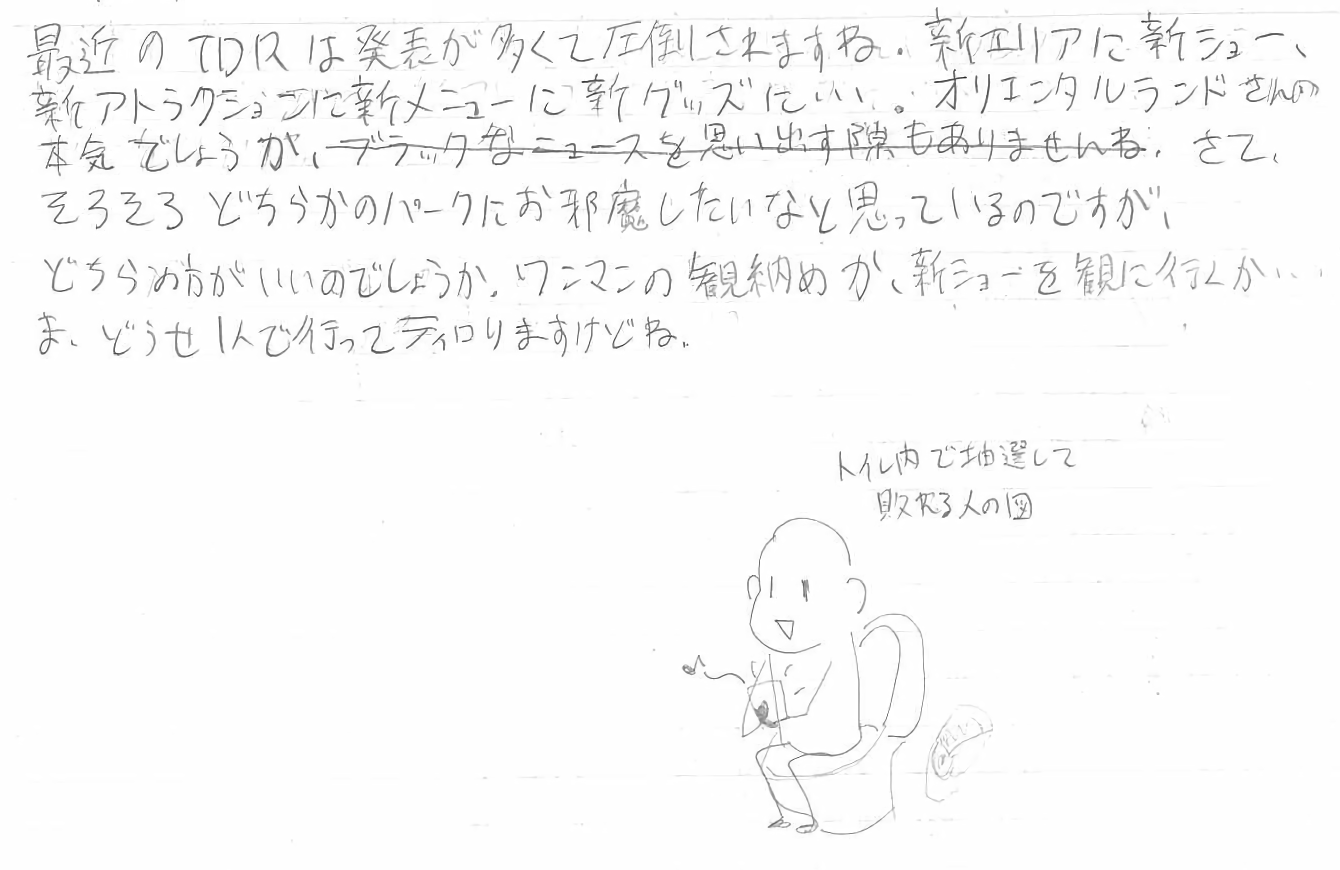 最近のTDRは発表が多くて圧倒されますね。新エリアに新ショー、
新アトラクションに新メニューに新グッズにいい。オリエンタルランドさんの
本気でしょうか、ブラックなニュースを思い出す隙もありませんね。さて、
そろそろどちらかのパークにお邪魔したいなと思っているのですが、
どちらの方がいいのでしょうか。ワンマンの観納めか、新ショーを観に行くか...
ま、どうせ1人で行ってディロりますけどね。
トイレ内で抽選して
敗れる人の図